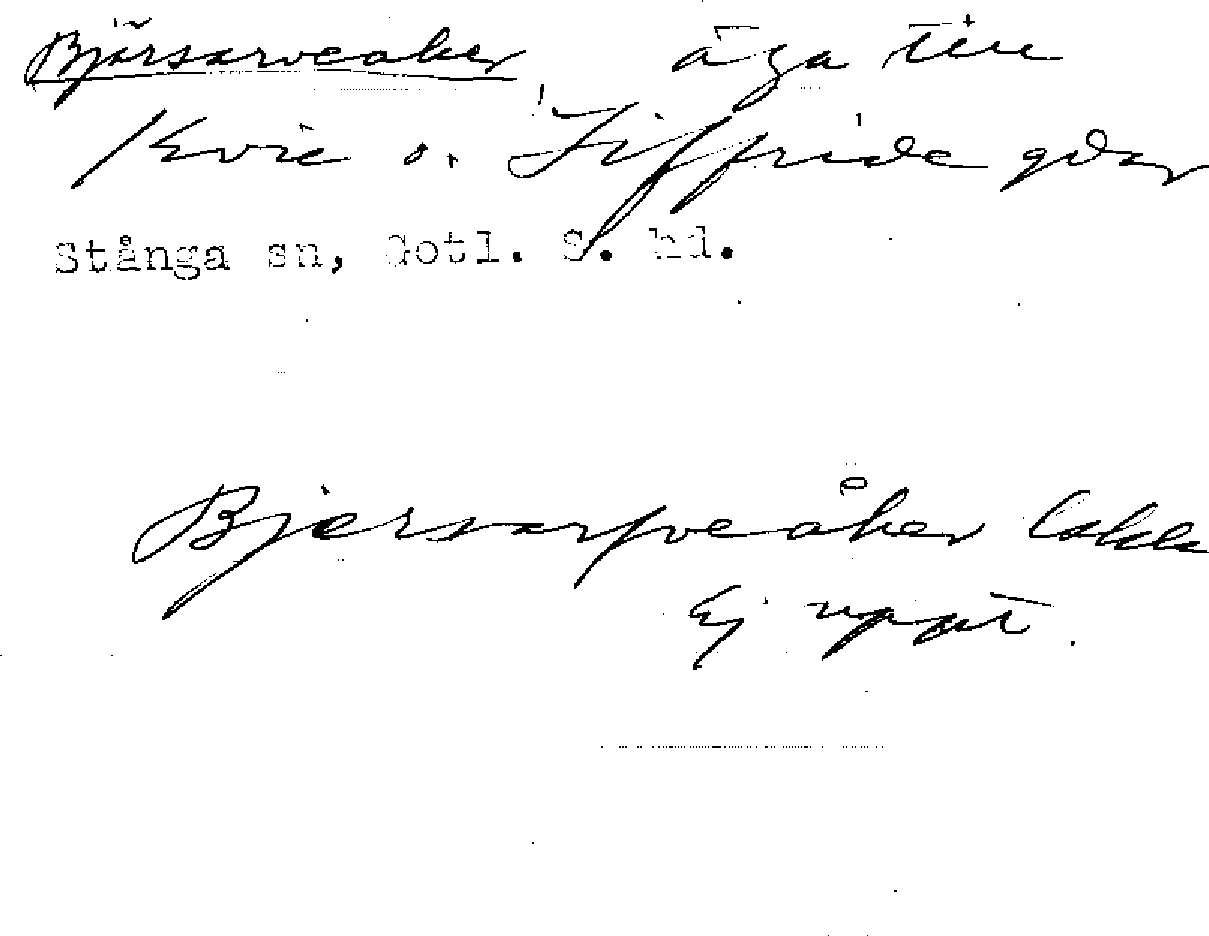 Bjärsarveaker äga till
Kvie o. Liffride gdar
Stånga sn, Gotl. S. hd.
Bjersarfveåker
Ej uppt.